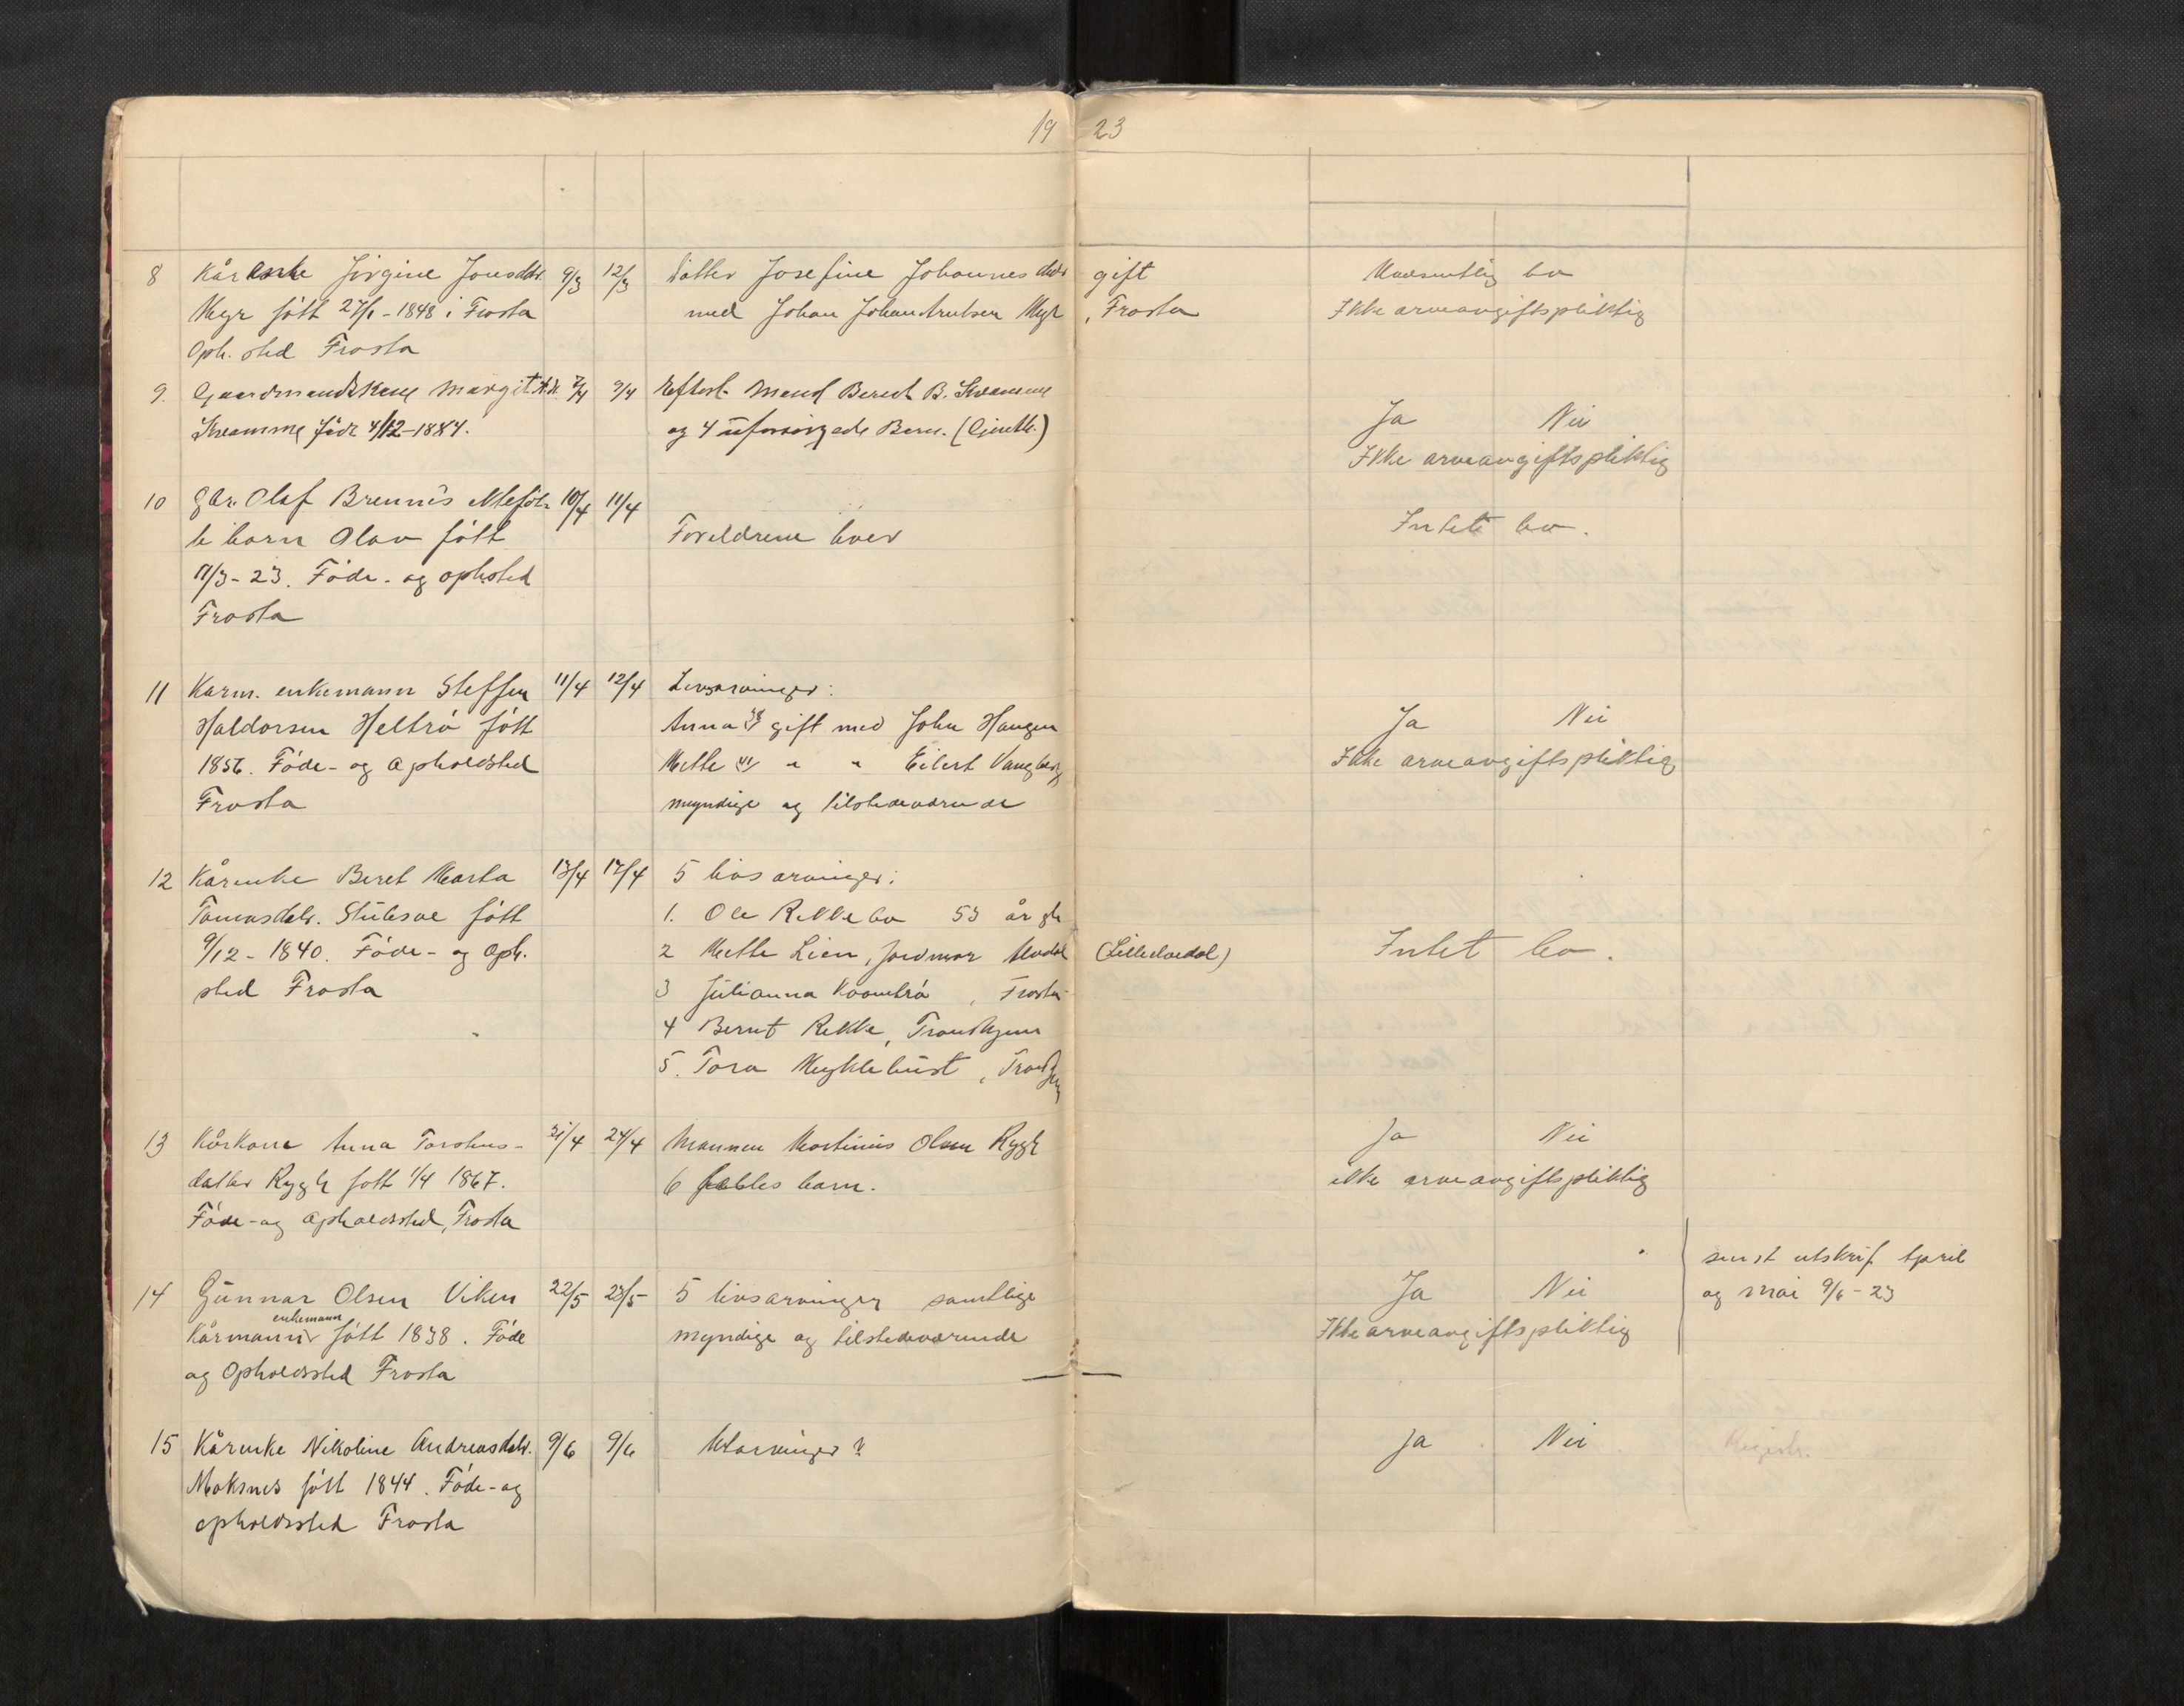 19 23
8 Kårenke Jørgine Jonsdtr. 9/3 12/3 Datter Josefine Johannesdtr gift Uvesentlig bo
Myr født 27/1 - 1848 i Frosta med Johan Johan Arntsen Myr, Frosta Ikke arveavgiftspliktig
Oph. sted Frosta
9. Gaardmandskone Margit 7/4 9/4 Efterl. Mand Berent B. Kvamme
Kvamme født 4/12-1884. og 4 uforsørgede Barn. Ja Nei
Ikke arveavgiftspliktig
10 Gbr. Olaf Brennes 10/4 11/4 Intet bo.
te barn Olav født Foreldrene lever
11/3 - 23. Føde- og ophsted
Frosta
11 Karm. enkemann Steffen 11/4 12/4 Livsarvinger:
Haldorsen Heltrø født Anna gift med John Haugen Ja Nei
1856. Føde- og opholdsted Mette 41 " " Eilert Vangberg Ikke arveavgiftspliktig
Frosta myndige og tilstedeværende
12 Kårenke Beret Marta 13/4 17/4 5 livsarvinger:
Tomasdtr. født 1. Ole Rekkebo 53 år gl.
9/12 - 1840. Føde- og Oph. 2 Mette Lien, jordmor Alvdal (Lilleelvedal) Intet bo.
sted Frosta 3 Julianna, Frosta
4 Bernt Rekke, Trondhjem
5. Tora Myklebust, Trondhjem
13 Kårkone Anna Torstens- 21/4 24/4 Mannen Martinius Olsen Rygh Ja Nei
datter Rygh født 1/4 1867. 6 felles barn. ikke arveavgiftspliktig
Føde- og opholdssted, Frosta
sendt utskrif. April
14 Gunnar Olsen Viken 22/5 23/5 5 livsarvinger samtlige Ja Nei og mai 9/6 - 23
enkemann
Kårmann født 1838. Føde myndige og tilstedeværende Ikke arveavgiftspliktig
og Opholdssted Frosta
15 Kårenke Nikoline Andreasdtr. 9/6 9/6 Utarvinger? Ja Nei Registr.
Moksnes født 1844. Føde- og
opholdssted Frosta